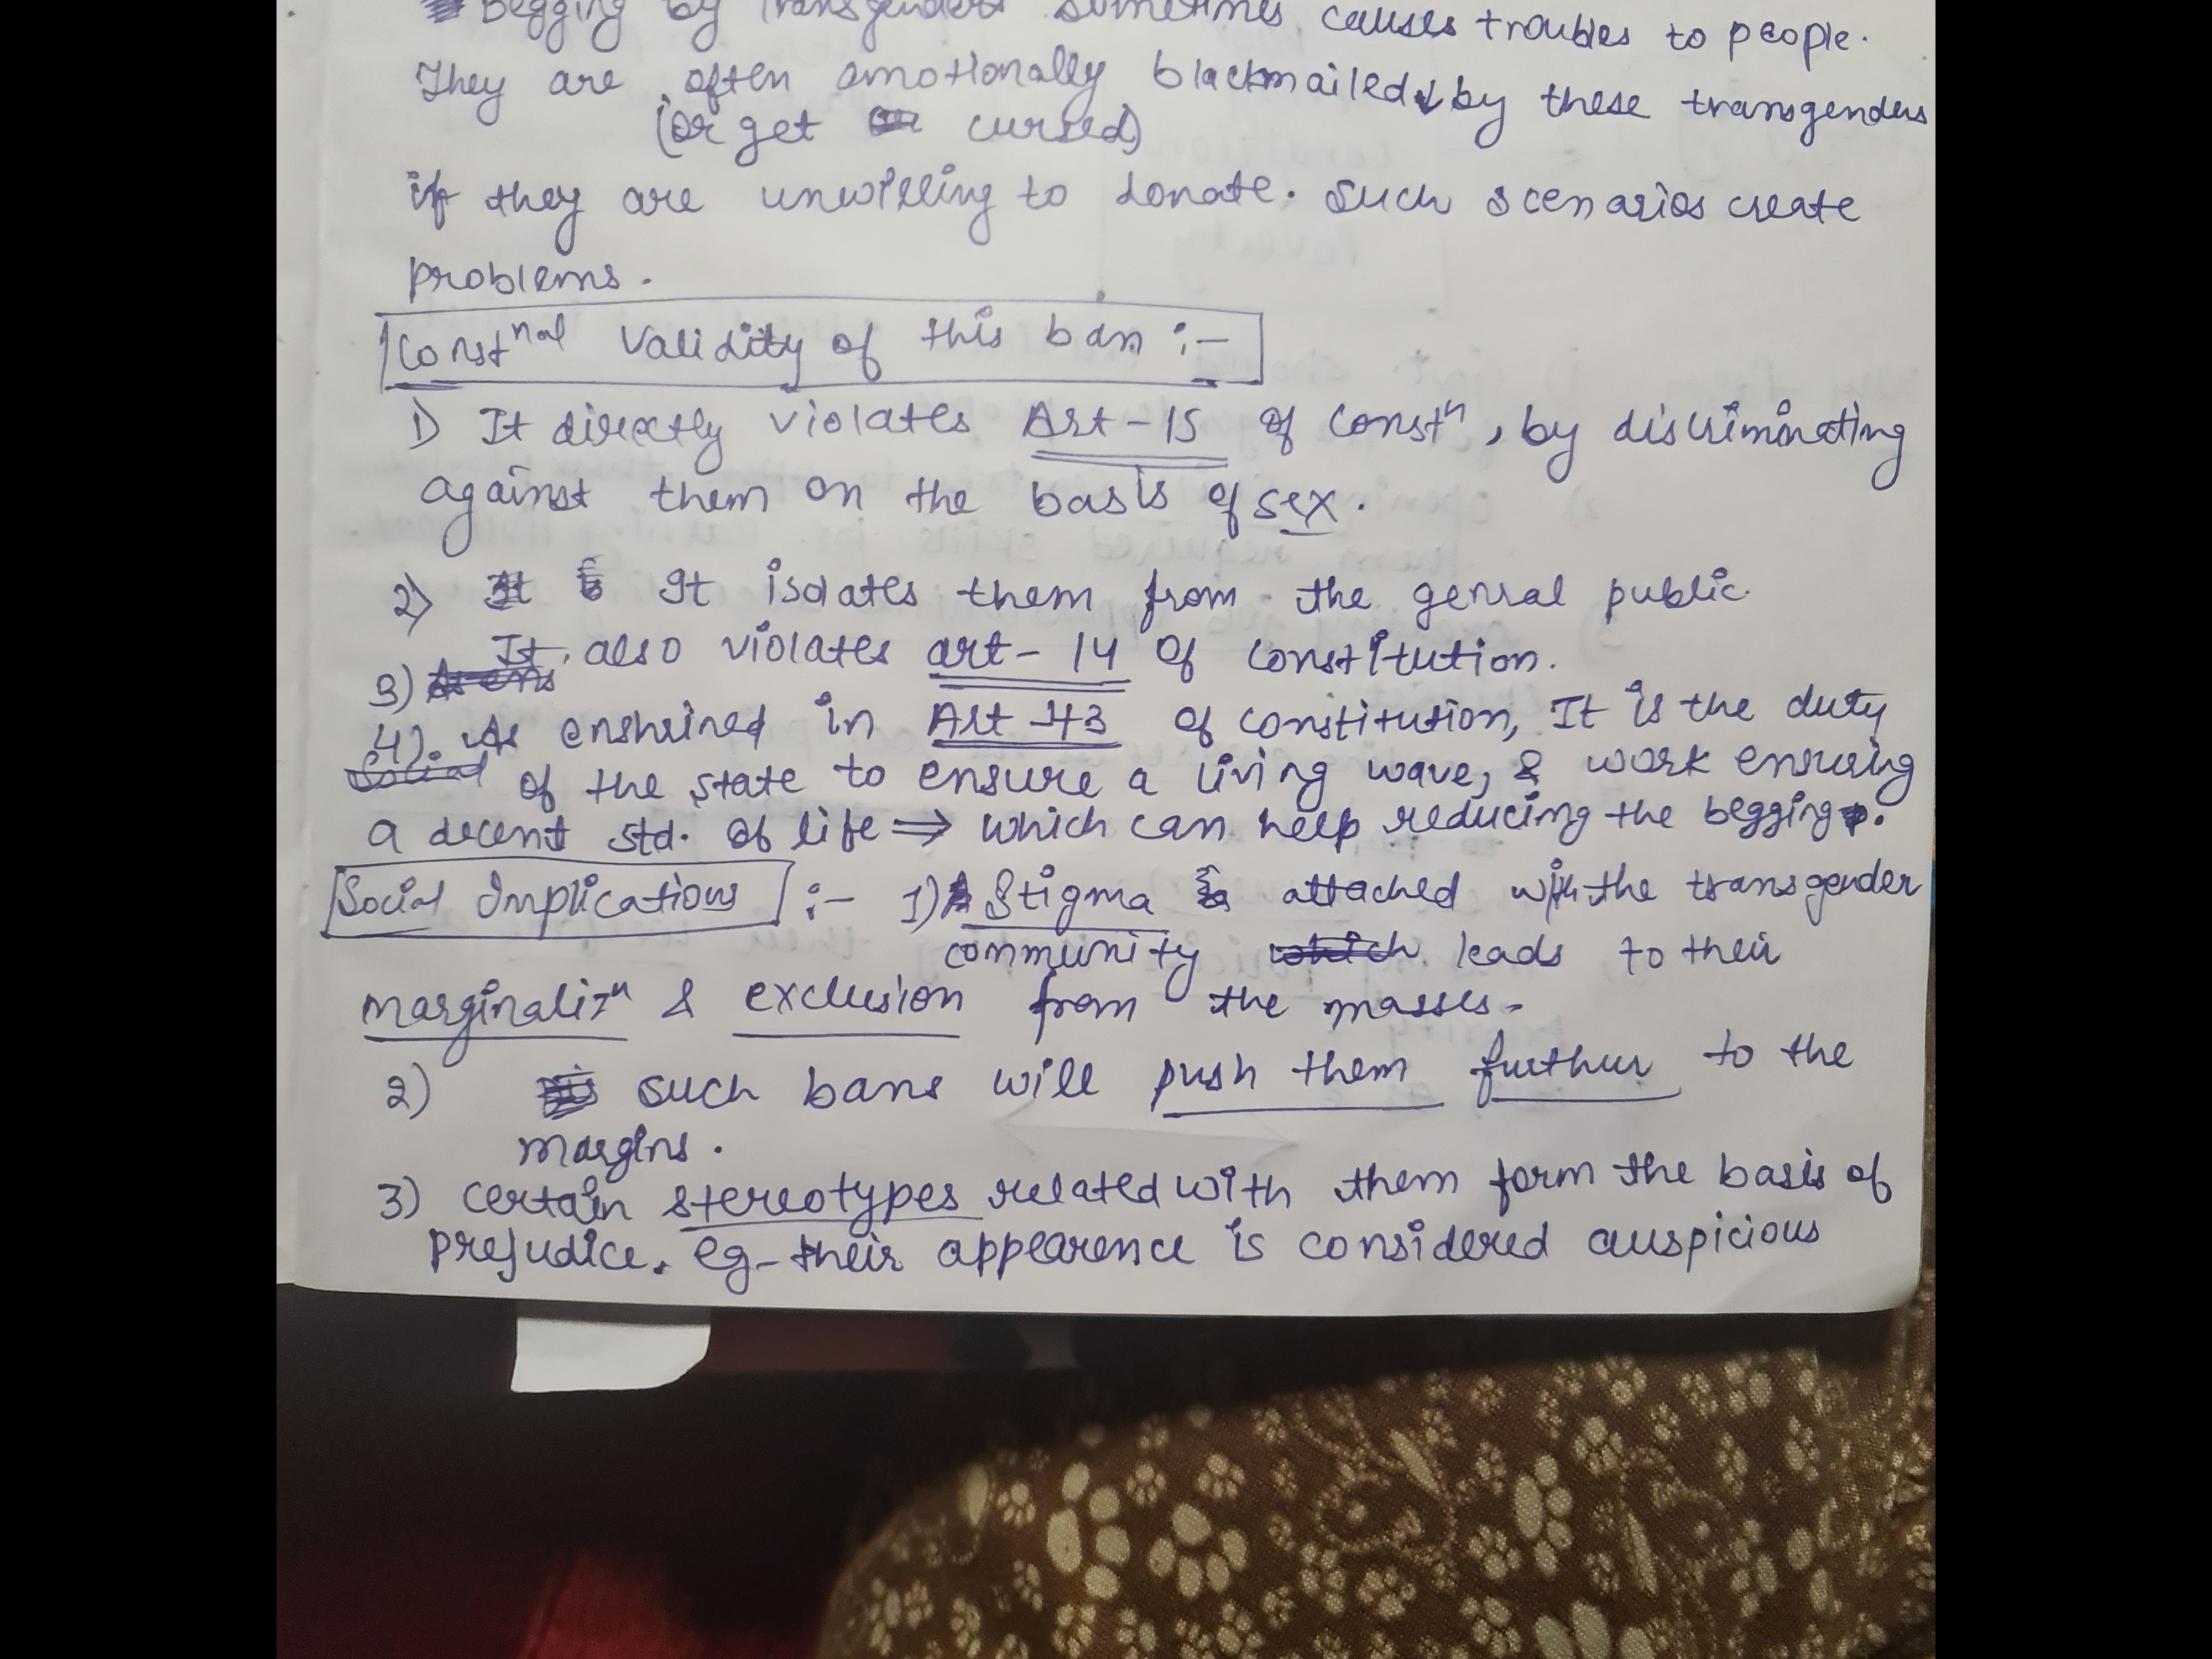 Begging by Transgenders sometimes causes troubles to people.
They are often emotionally blackmailed by these transgenders
(or get cursed)
if they are unwilling to donate. Such scenarios create
problems.
Constnal Validity of this ban :-
1) It directly violates Art-15 of constn, by discriminating
against them on the basis of sex.
2) It isolates them from the genral public.
3) It also violates art-14 of constitution.
4). As enshrined in Art-43 of constitution, It is the duty
of the state to ensure a living wave, & work ensuring
a decent std. of life ⇒ which can help reducing the begging.
Social Implications :- 1) Stigma attached with the transgender
community leads to their
marginalizn & exclusion from the masses.
2) such bans will push them further to the
margins.
3) certain stereotypes related with them form the basis of
prejudice. eg-their appearence is considered auspicious